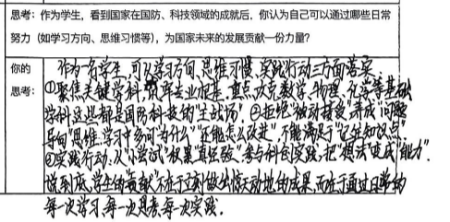 思考：作为学生，看到国家在国防、科技领域的成就后，你认为自己可以通过哪些日常
努力（如学习方向、思维习惯等），为国家未来的发展贡献一份力量？
你的
思考：
作为一名学生，可从学习方向、思维习惯、实践行动三方面落实
①聚焦关键学科，重点攻克数学、物理、化学等基础
学科这些都是国防科技的“主战场”，②拒绝“被动接受”养成“问题
导向”思维，学习中多问“为什么”“还能怎么改进”，不能满足于“记住知识点”
③实践行动：从“小尝试”积累“真经验”参与科创实践，把“想法”变成“能力”.
说到底，学生的“贡献”不在于立刻做出惊天动地的成果，而在于通过日常的
每一次学习、每一次思考、每一次实践.